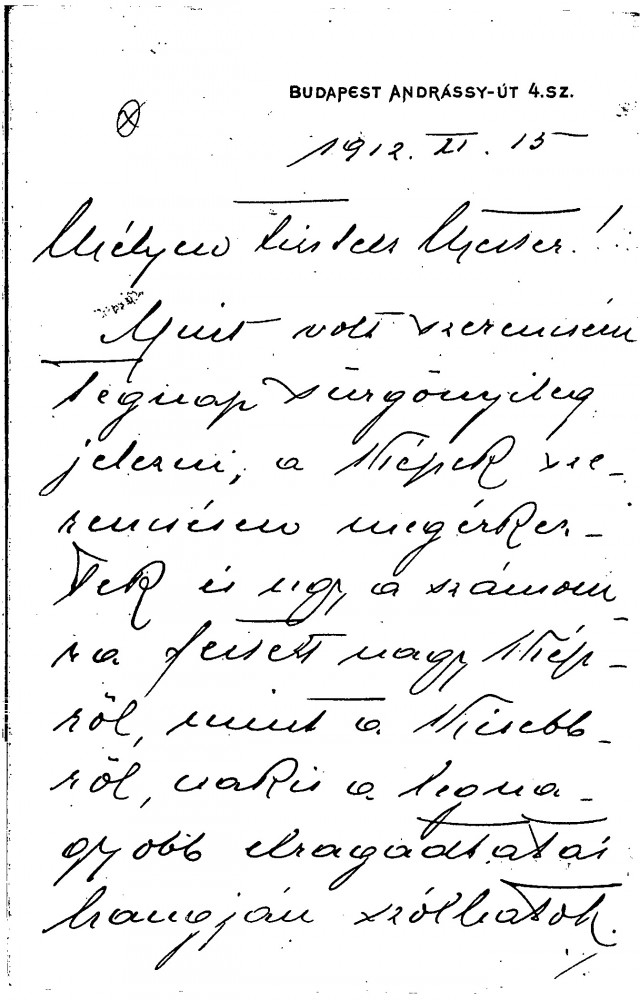 BUDAPEST ANDRÁSSY-ÚT 4.SZ.
1912. XI. 15
Mélyen tisztelt Mester!
Mint volt szerencsém
tegnap sürgönyileg
jelezni, a képek sze-
rencsésen megérkez-
tek és ugy a számom-
ra festett nagy kép-
ről, mint a kisebb-
ről, csakis a legna-
gyobb elragadtatás
hangján szólhatok.
./.